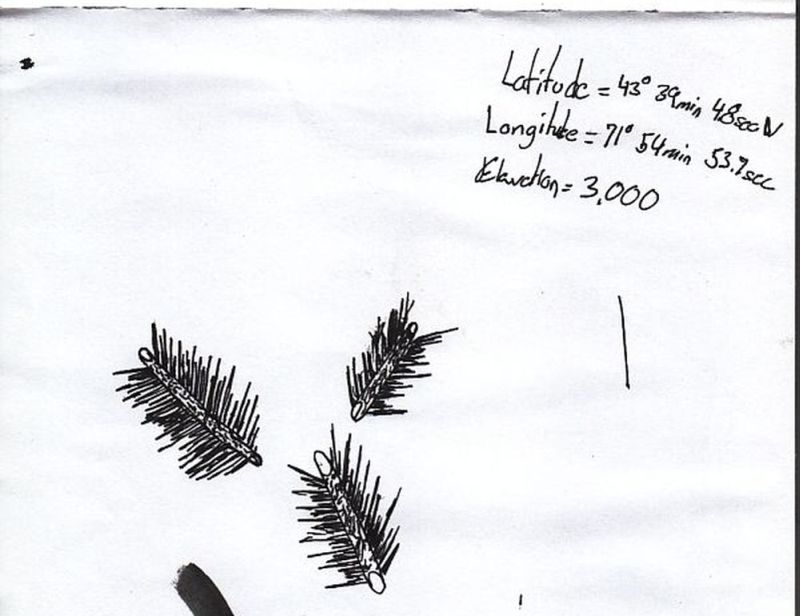 Latitude = 43° 39min 48sec N
Longitude = 71° 54min 53.7sec
Elevation = 3,000